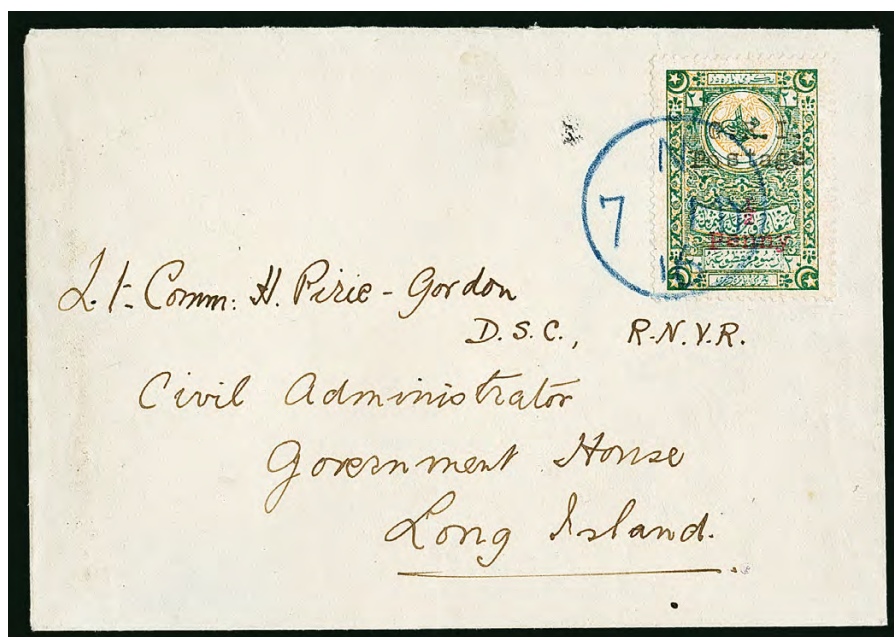 G.R.I.
Postage
Penny
N
7
Lt-Comm: H. Pirie-Gordon
D.S.C., R.N.V.R.
Civil Administrator
Government House
Long Island.